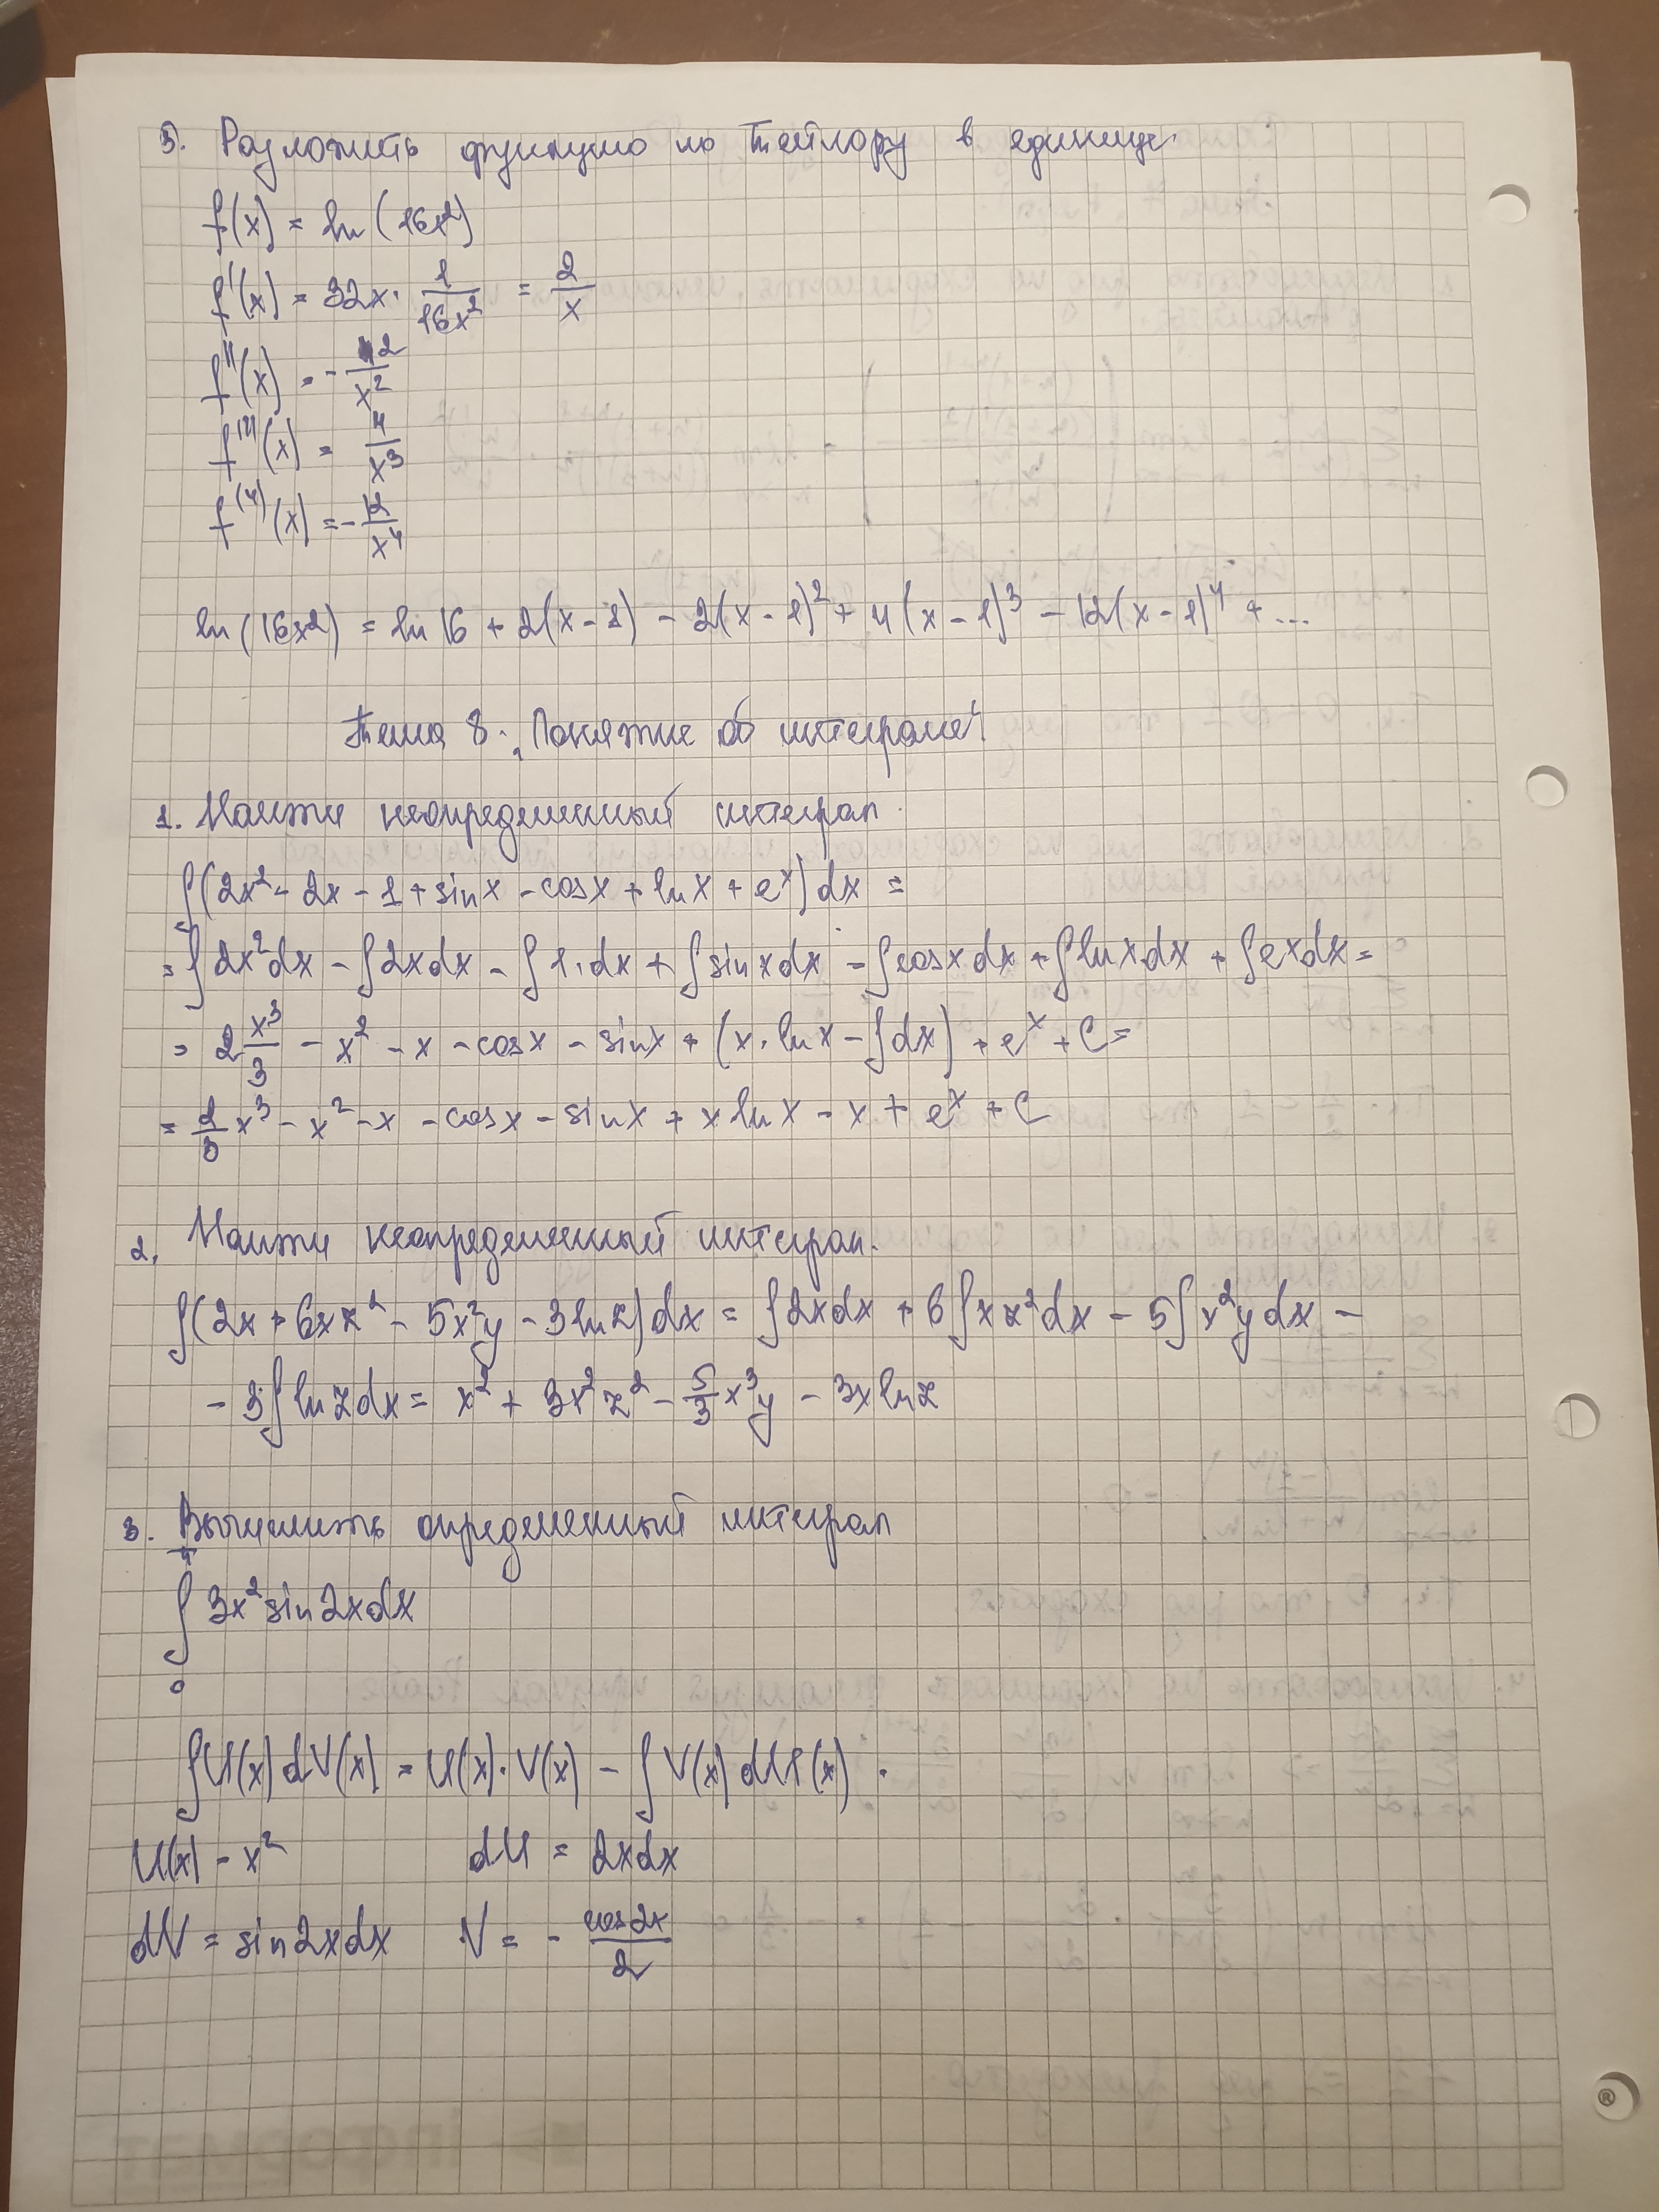 5. Разложить функцию по Тейлору в единице
f(x) = ln(16x²)
f'(x) = 32x · 1/16x² = 2/x
f''(x) = - 2/x²
f'''(x) = 4/x³
f⁽⁴⁾(x) = - 12/x⁴
ln(16x²) = ln16 + 2(x-1) - 2(x-1)² + 4(x-1)³ - 12(x-1)⁴ + ...
Тема 8. „Понятие об интеграле"
1. Найти неопределенный интеграл.
∫(2x² - 2x - 1 + sinx - cosx + lnx + eˣ)dx =
= ∫2x²dx - ∫2xdx - ∫1·dx + ∫sinxdx - ∫cosxdx + ∫lnxdx + ∫eˣdx =
= 2 x³/3 - x² - x - cosx - sinx + (x·lnx - ∫dx) + eˣ + C =
= 2/3 x³ - x² - x - cosx - sinx + xlnx - x + eˣ + C
2. Найти неопределенный интеграл.
∫(2x + 6xz² - 5x²y - 3lnz)dx = ∫2xdx + 6∫xz²dx - 5∫x²ydx -
- 3∫lnzdx = x² + 3x²z² - 5/3 x³y - 3xlnz
3. Вычислить определенный интеграл
∫₀ 3x²sin2xdx
∫U(x)dV(x) = U(x)·V(x) - ∫V(x)dU(x).
U(x) - x² dU = 2xdx
dV = sin2xdx V = - cos2x/2
®